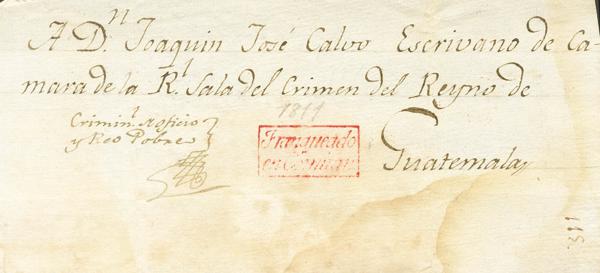 A D.n Joaquin José Calvo Escrivano de Ca-
mara de la R.l Sala del Crimen del Reyno de
Guatemala
Crimin.l de oficio
y Reo Pobre
1811
Franqueado
en
311